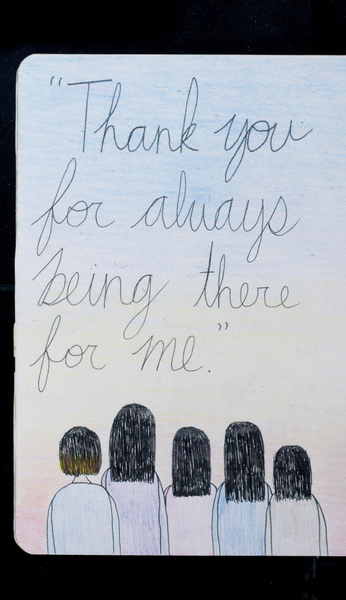 "Thank you
for always
being there
for me."